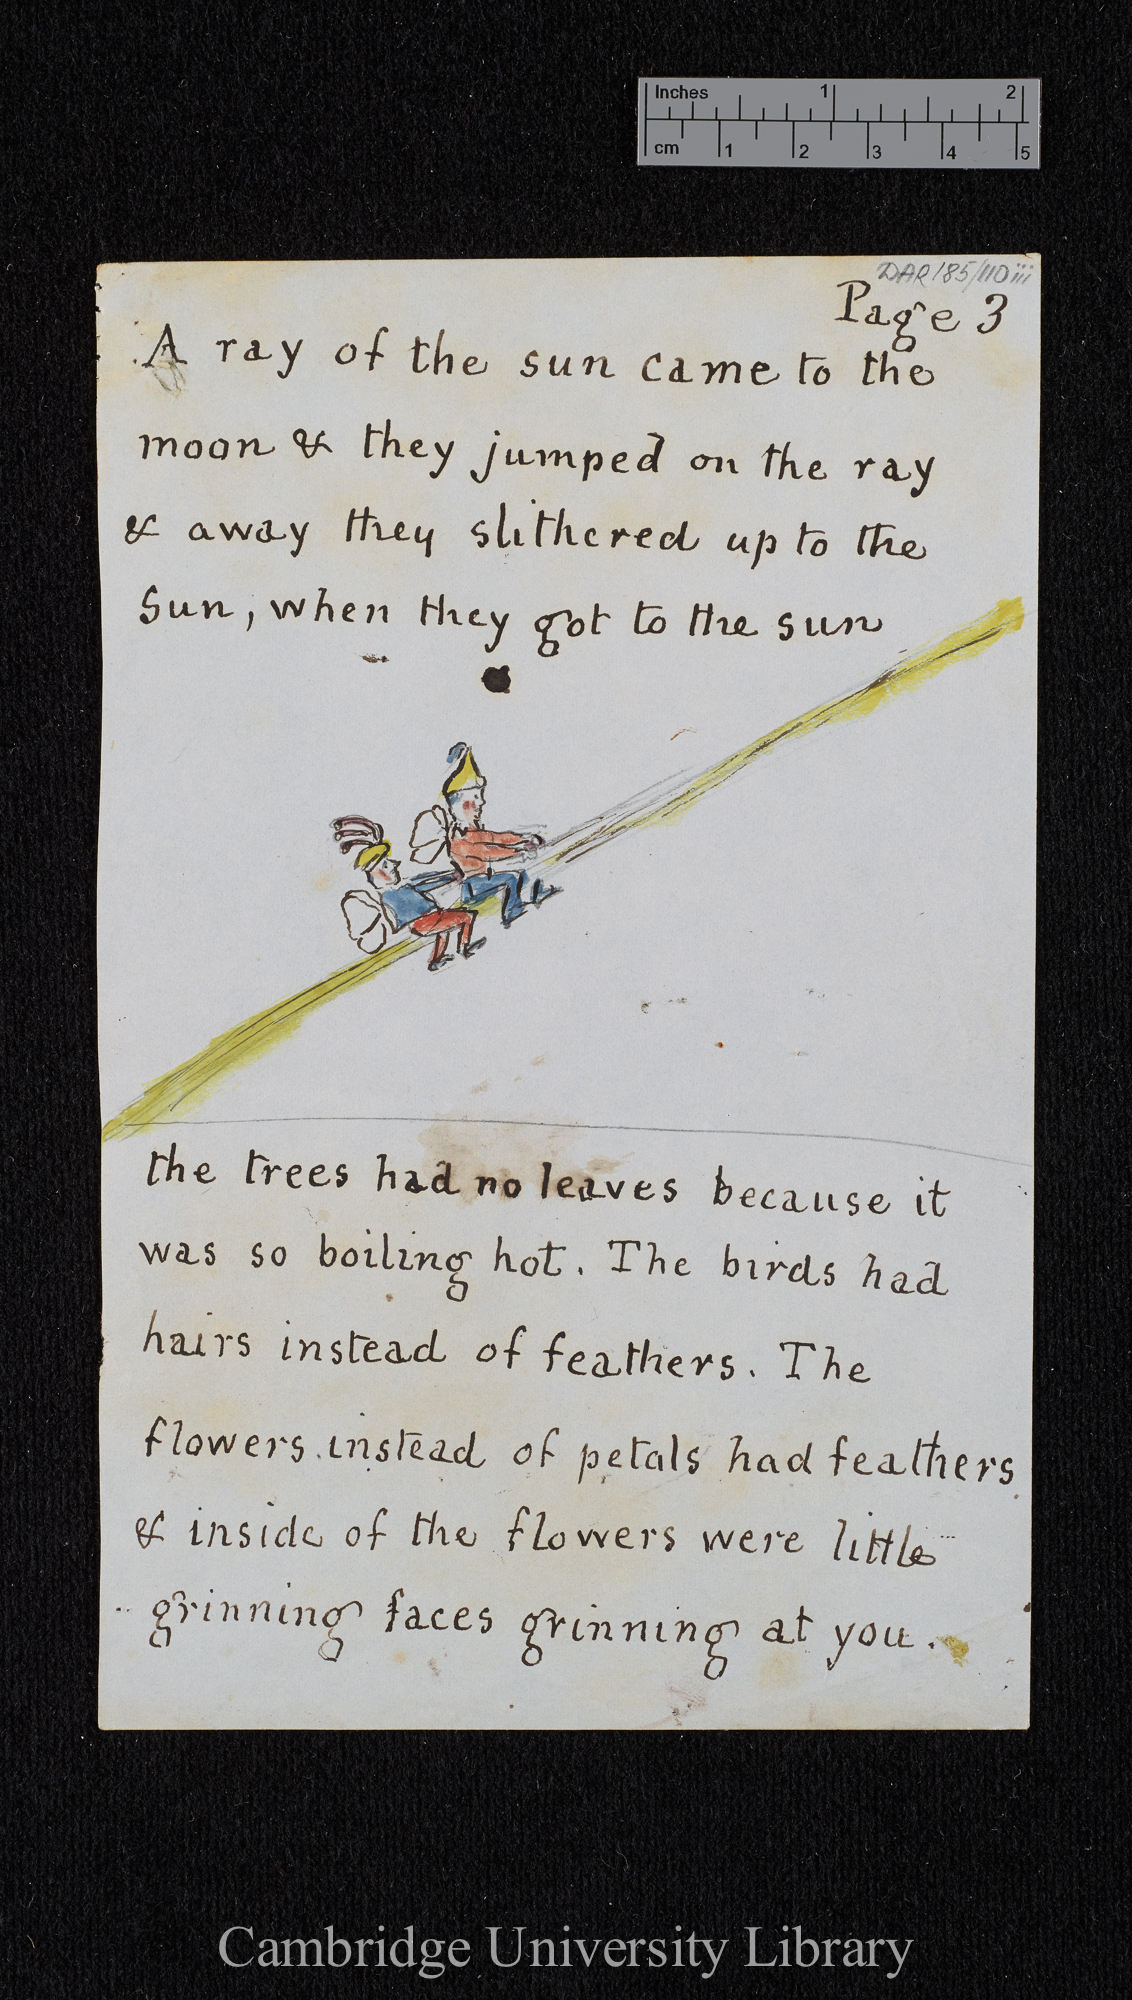 Inches 1 2
cm 1 2 3 4 5
DAR 185/110iii
Page 3
A ray of the sun came to the
moon & they jumped on the ray
& away they slithered up to the
Sun, when they got to the sun
the trees had no leaves because it
was so boiling hot. The birds had
hairs instead of feathers. The
flowers instead of petals had feathers
& inside of the flowers were little
grinning faces grinning at you.
Cambridge University Library